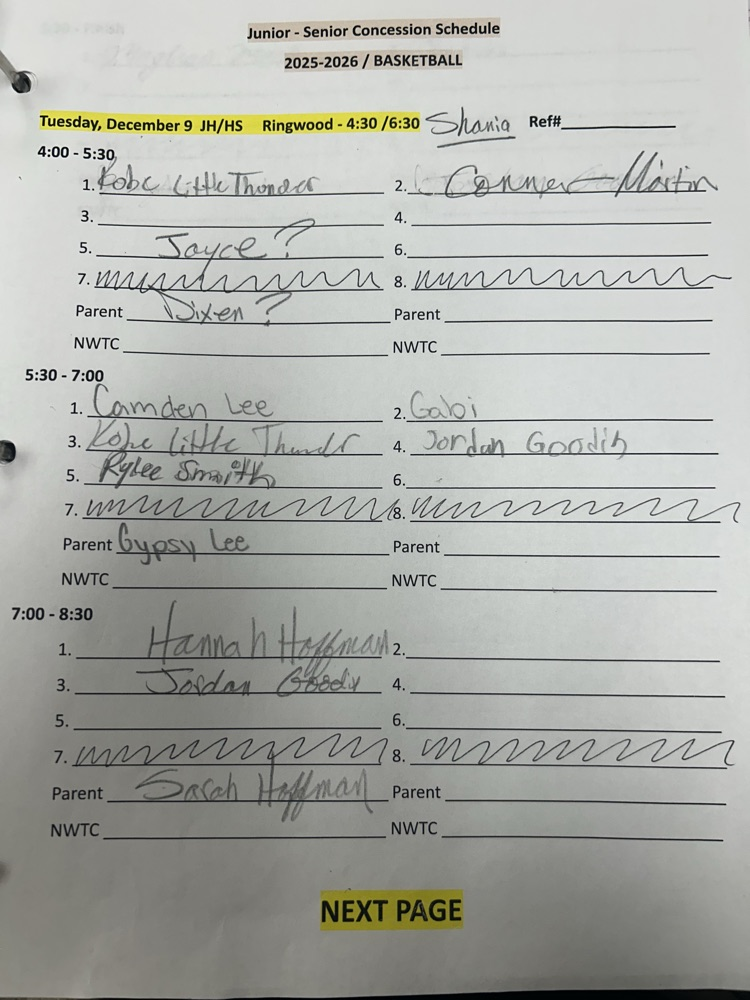 Junior - Senior Concession Schedule
2025-2026 / BASKETBALL
Tuesday, December 9 JH/HS Ringwood - 4:30 /6:30 Shania Ref#
4:00 - 5:30
1. Kobe Little Thunder 2. Conner Martin
3. 4.
5. Jayce? 6.
7. 8.
Parent Dixen? Parent
NWTC NWTC
5:30 - 7:00
1. Camden Lee 2. Gabi
3. Kobe Little Thunder 4. Jordan Goodin
5. Rylee Smith 6.
7. 8.
Parent Gypsy Lee Parent
NWTC NWTC
7:00 - 8:30
1. Hannah Hoffman 2.
3. Jordan 4.
5. 6.
7. 8.
Parent Sarah Hoffman Parent
NWTC NWTC
NEXT PAGE